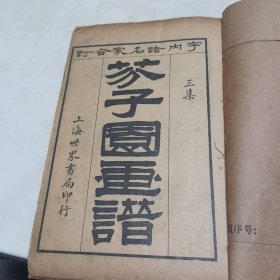 宇內諸名家合訂
三集
芥子園畫譜
上海世界書局印行
序号: